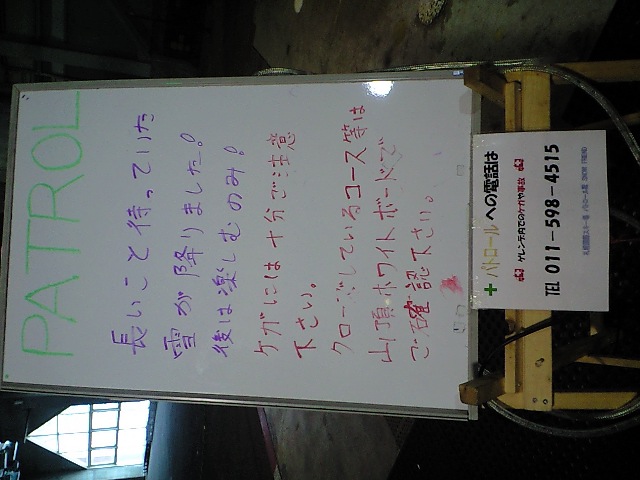 PATROL
長いこと待っていた
雪が降りました!
後は楽しむのみ!
ケガには十分ご注意
下さい。
クローズしているコース等は
山頂ホワイトボードで
ご確認下さい。
パトロールへの電話は
ゲレンデ内でのケガや事故
TEL 011-598-4515
札幌国際スキー場 パトロール隊 SNOW FRIEND